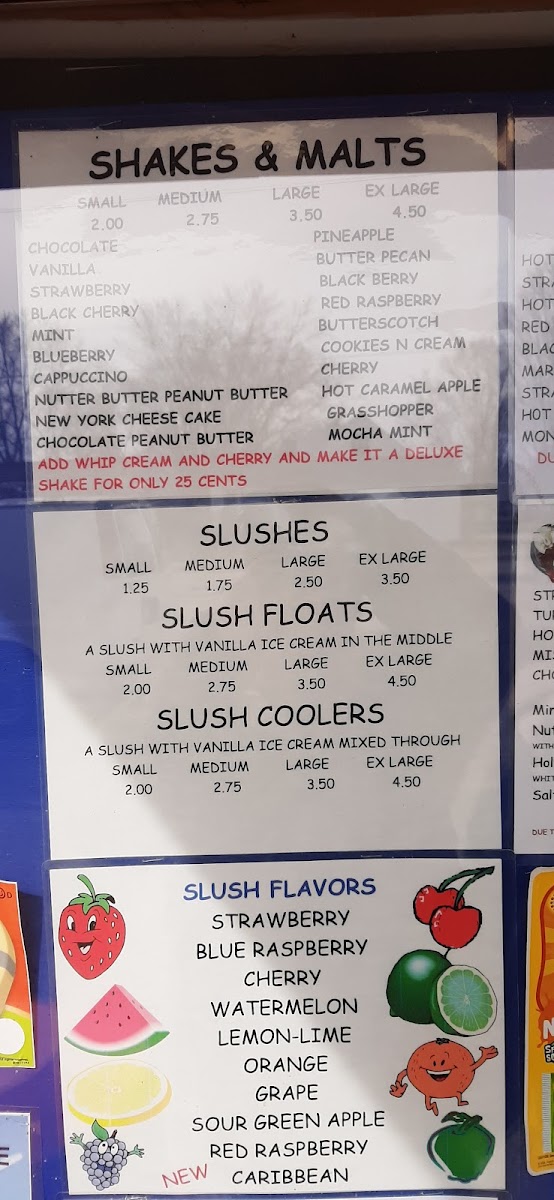 SHAKES & MALTS
SMALL MEDIUM LARGE EX LARGE
2.00 2.75 3.50 4.50
CHOCOLATE PINEAPPLE
VANILLA BUTTER PECAN
STRAWBERRY BLACK BERRY
BLACK CHERRY RED RASPBERRY
MINT BUTTERSCOTCH
BLUEBERRY COOKIES N CREAM
CAPPUCCINO CHERRY
NUTTER BUTTER PEANUT BUTTER HOT CARAMEL APPLE
NEW YORK CHEESE CAKE GRASSHOPPER
CHOCOLATE PEANUT BUTTER MOCHA MINT
ADD WHIP CREAM AND CHERRY AND MAKE IT A DELUXE
SHAKE FOR ONLY 25 CENTS
SLUSHES
SMALL MEDIUM LARGE EX LARGE
1.25 1.75 2.50 3.50
SLUSH FLOATS
A SLUSH WITH VANILLA ICE CREAM IN THE MIDDLE
SMALL MEDIUM LARGE EX LARGE
2.00 2.75 3.50 4.50
SLUSH COOLERS
A SLUSH WITH VANILLA ICE CREAM MIXED THROUGH
SMALL MEDIUM LARGE EX LARGE
2.00 2.75 3.50 4.50
SLUSH FLAVORS
STRAWBERRY
BLUE RASPBERRY
CHERRY
WATERMELON
LEMON-LIME
ORANGE
GRAPE
SOUR GREEN APPLE
RED RASPBERRY
NEW CARIBBEAN
HOT
HOT
RED
HOT
DUE T